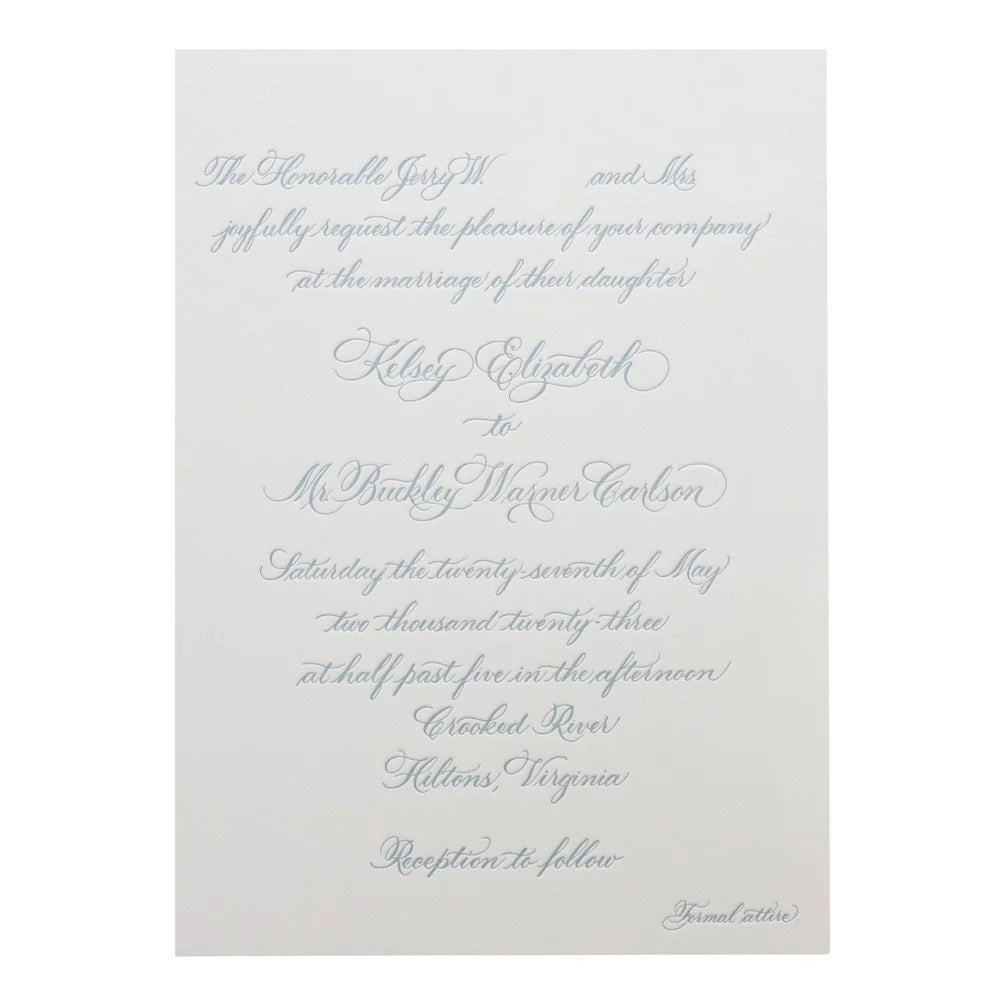 The Honorable Jerry W. and Mrs.
joyfully request the pleasure of your company
at the marriage of their daughter
Kelsey Elizabeth
to
Mr. Buckley Warner Carlson
Saturday the twenty-seventh of May
two thousand twenty-three
at half past five in the afternoon
Crooked River
Hiltons, Virginia
Reception to follow
Formal attire